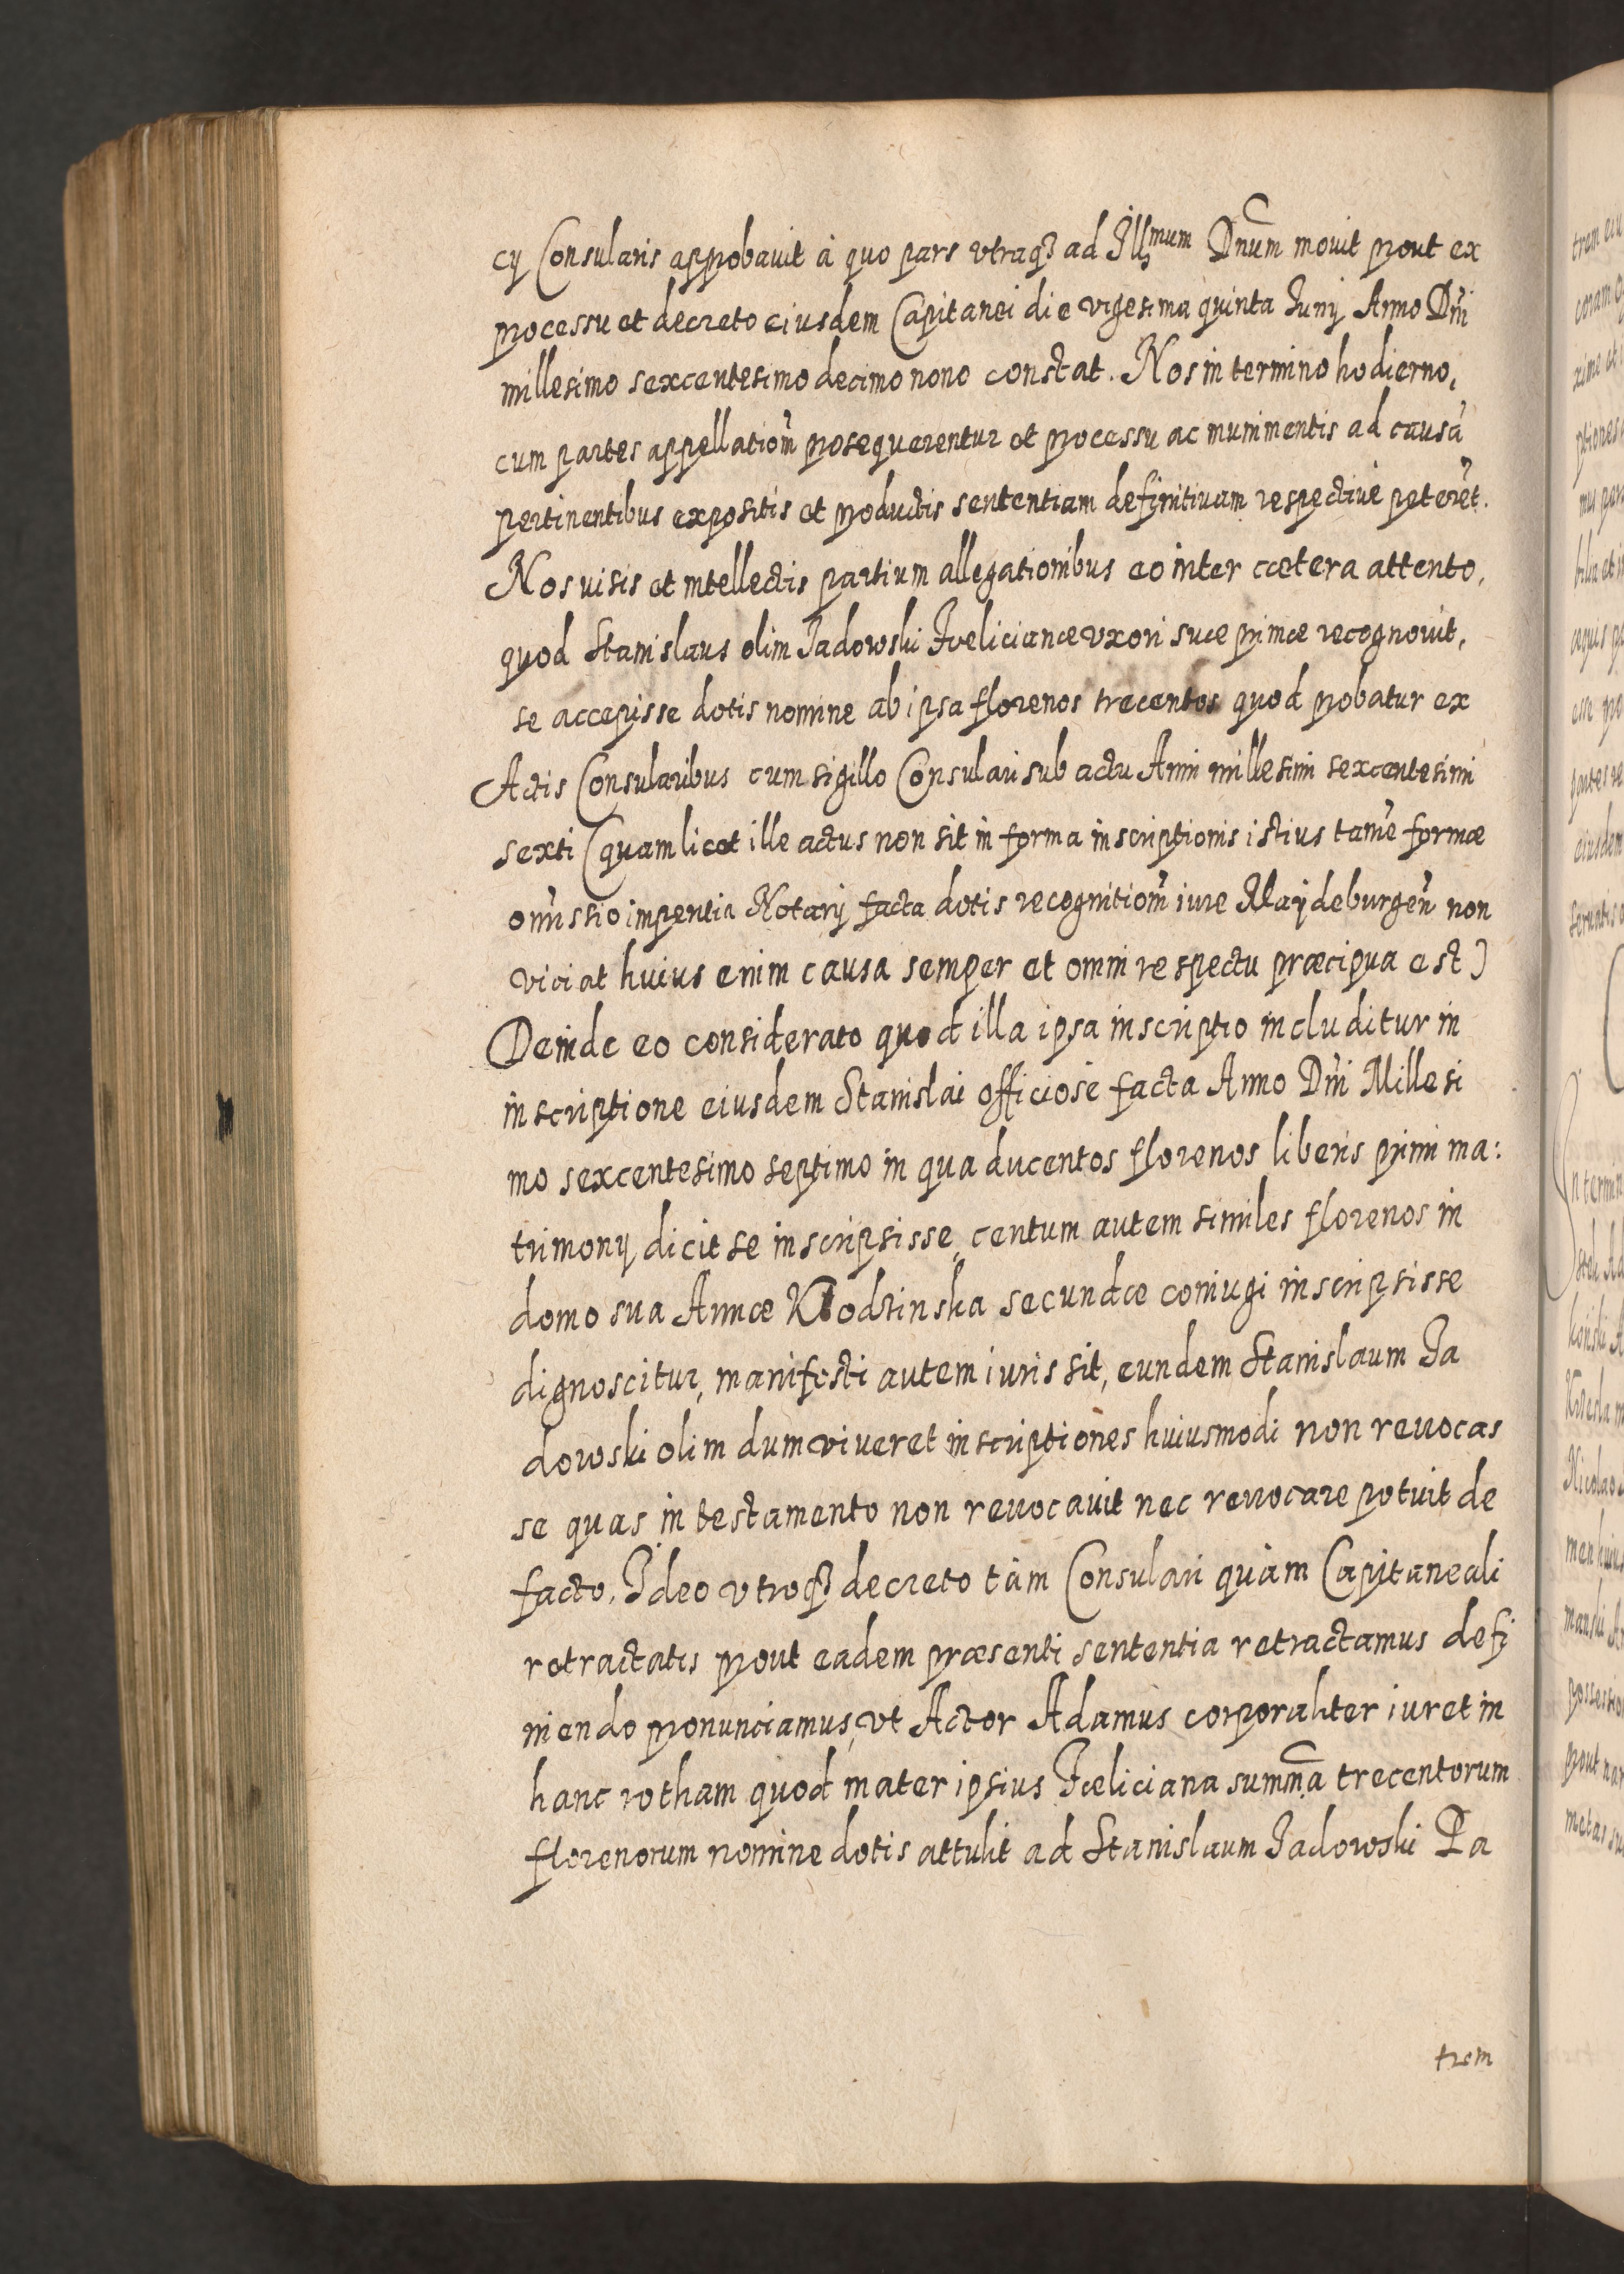 cÿ Consularis approbavit à quo pars vtraq₃ ad Illmum Dnum movit prout ex
processu et decreto eiusdem Capitanei die vigesima quinta Junÿ Anno Dñi
millesimo sexcentesimo decimo nono constat. Nos in termino hodierno,
cum partes appellation̄ prosequerentur et processu ac munimentis ad causā
pertinentibus expositis et productis sententiam definitivam respectivè peterēt.
Nos visis et intellectis partium allegationibus eo inter cætera attento,
quod Stanislaus olim Jadowski Fæliciance vxori suæ primæ recognovit,
se accepisse dotis nomine ab ipsa florenos trecentos quod probatur ex
Actis Consularibus cum sigillo Consulari sub actu Anni millesimi sexcentesimi
sexti (quam licet ille actus non sit in forma inscriptionis istius tamē formæ
omissio impentia Notarÿ facta dotis recognition̄ iure Maÿdeburgen̄ non
viciat huius enim causa semper et omni respectu præcipua est)
Deinde eo considerato quod illa ipsa inscriptio includitur in
inscriptione eiusdem Stanislai officiosè facta Anno Dñi Millesi
mo sexcentesimo septimo in qua ducentos florenos liberis primi ma:
trimonÿ dicit se inscripsisse, centum autem similes florenos in
domo sua Annæ Klodzinska secundæ coniugi inscripsisse
dignoscitur, manifesti autem iuris sit, eundem Stanislaum Ja
dowski olim dum viveret inscriptiones huiusmodi non revocas
se quas in testamento non revocavit nec revocare potuit de
facto. Ideo vtroq₃ decreto tàm Consulari quàm Capitaneali
retractatis prout eadem præsenti sententia retractamus defi
niendo pronunciamus, vt Actor Adamus corporaliter iuret in
hanc rotham quod mater ipsius Fæliciana summā trecentorum
florenorum nomine dotis attulit ad Stanislaum Jadowski Pa
trem